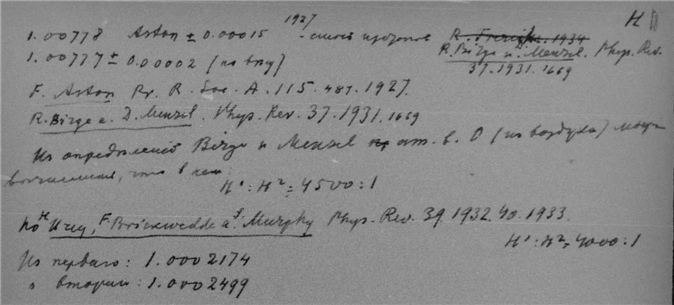 H
1.00778 Aston ± 0.00015 1927 - смесь изотопов R. Birge и D. Menzel. Phys. Rev.
37.1931.1669
1.00777 ± 0.00002 (по
F. Aston Pr. R. Soc. A. 115. 487. 1927.
R. Birge a. D. Menzel. Phys. Rev. 37. 1931. 1669
Из определений Birge и Menzel ат. в. O (из воздуха)
что в нем
H¹ : H² = 4500 : 1
по H. Urey, F. Brickwedde a. Murphy Phys. Rev. 39. 1932. 40. 1933.
H¹ : H² = 4000 : 1
Из первого: 1.0002174
из второго: 1.0002499